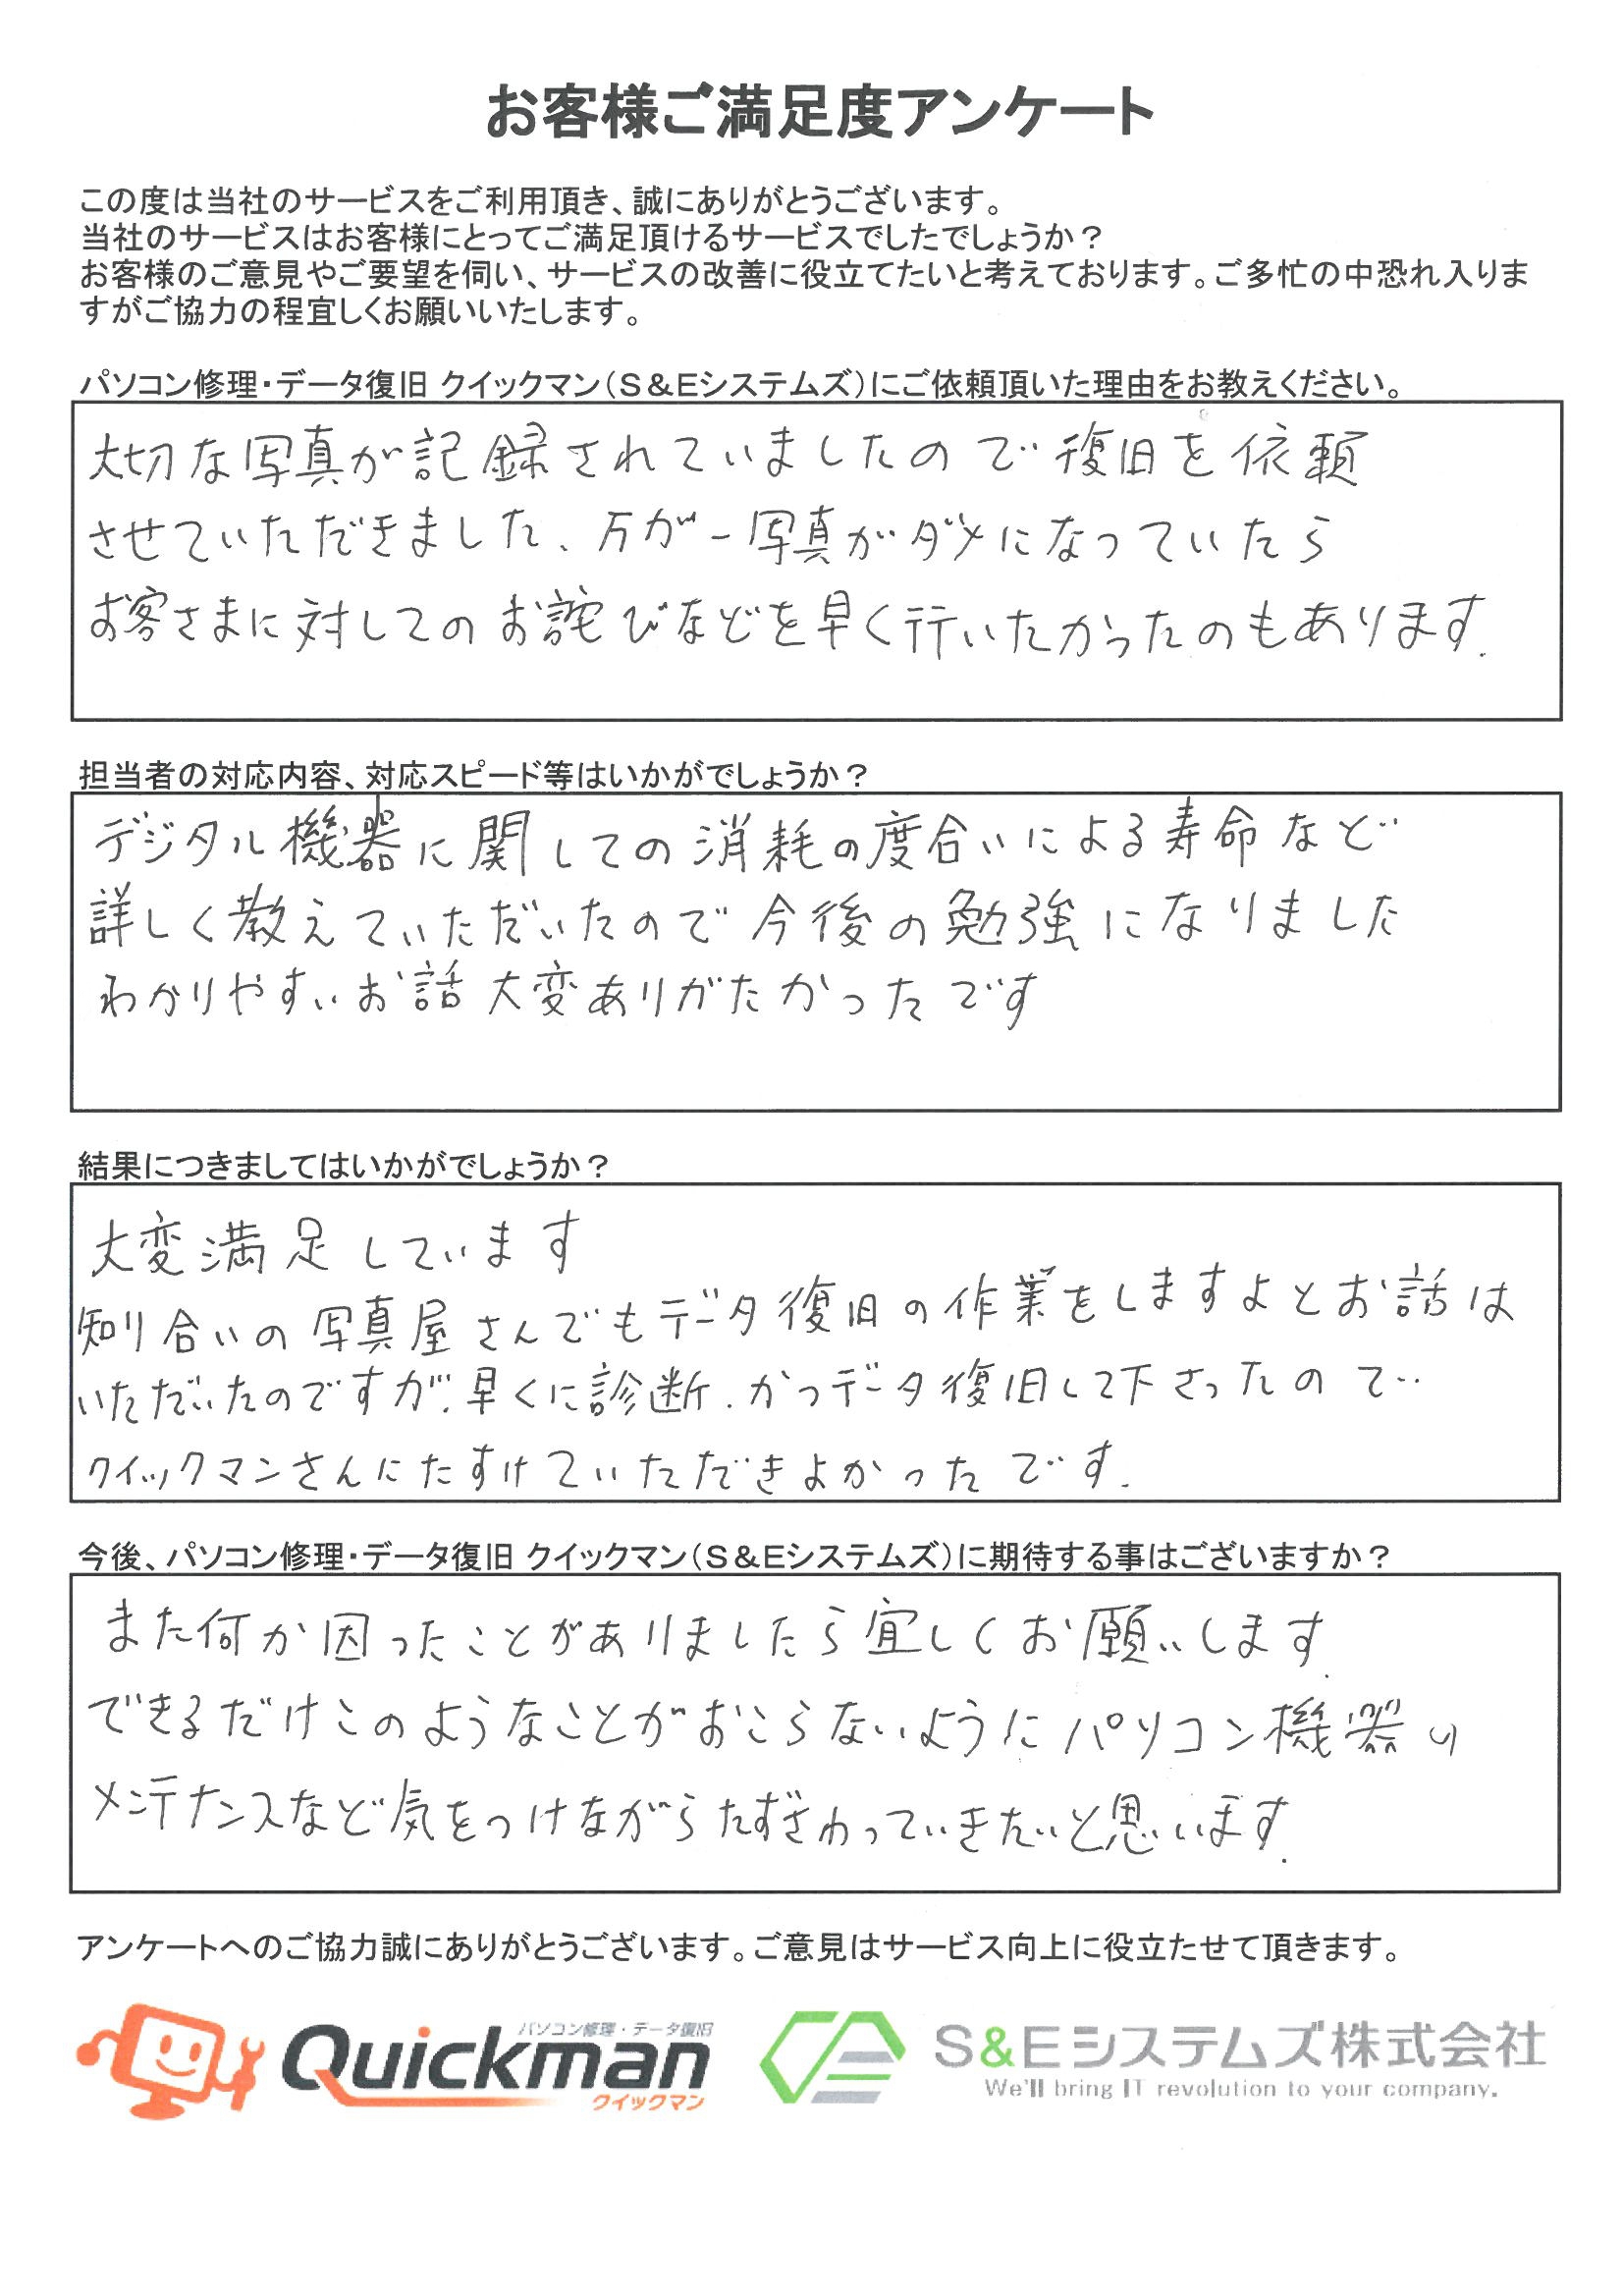 お客様ご満足度アンケート
この度は当社のサービスをご利用頂き、誠にありがとうございます。
当社のサービスはお客様にとってご満足頂けるサービスでしたでしょうか？
お客様のご意見やご要望を伺い、サービスの改善に役立てたいと考えております。ご多忙の中恐れ入りま
すがご協力の程宜しくお願いいたします。
パソコン修理・データ復旧 クイックマン（Ｓ＆Ｅシステムズ）にご依頼頂いた理由をお教えください。
大切な写真が記録されていましたので復旧を依頼
させていただきました、万が一写真がダメになっていたら
お客さまに対してのお詫びなどを早く行いたかったのもあります.
担当者の対応内容、対応スピード等はいかがでしょうか？
デジタル機器に関しての消耗の度合いによる寿命など
詳しく教えていただいたので今後の勉強になりました
わかりやすいお話大変ありがたかったです
結果につきましてはいかがでしょうか？
大変満足しています
知り合いの写真屋さんでもデータ復旧の作業をしますよとお話は
いただいたのですが、早くに診断、かつデータ復旧して下さったので
クイックマンさんにたすけていただきよかったです.
今後、パソコン修理・データ復旧 クイックマン（Ｓ＆Ｅシステムズ）に期待する事はございますか？
また何か困ったことがありましたら宜しくお願いします.
できるだけこのようなことがおこらないようにパソコン機器の
メンテナンスなど気をつけながらたずさわっていきたいと思います.
アンケートへのご協力誠にありがとうございます。ご意見はサービス向上に役立たせて頂きます。
パソコン修理・データ復旧
Quickman
クイックマン
S&Eシステムズ株式会社
We'll bring IT revolution to your company.